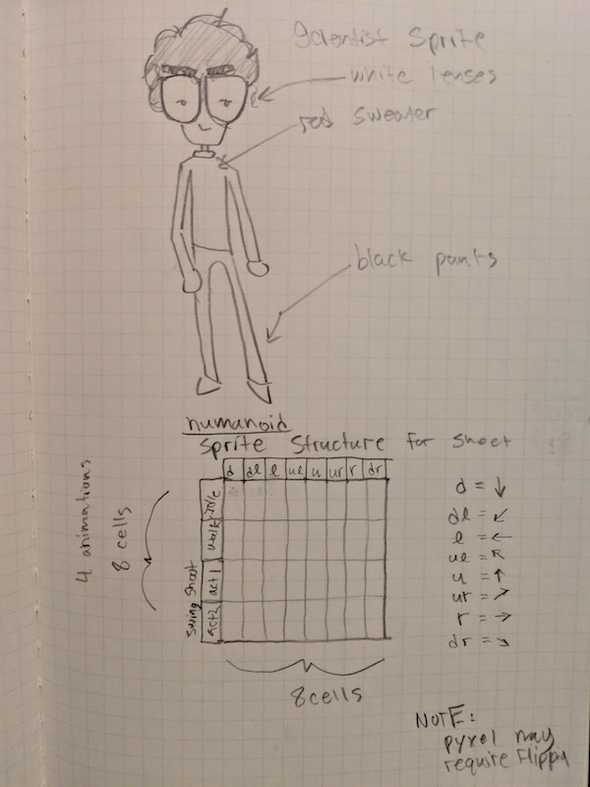 Scientist Sprite
white lenses
red sweater
black pants
humanoid
Sprite Structure for Sheet
d dl l ul u ur r dr
idle
walk
Shoot act1
Swing act2
4 animations
8 cells
8 cells
d = ↓
dl = ↙
l = ←
ul = ↖
u = ↑
ur = ↗
r = →
dr = ↘
NOTE:
pyxel may
require Flippy